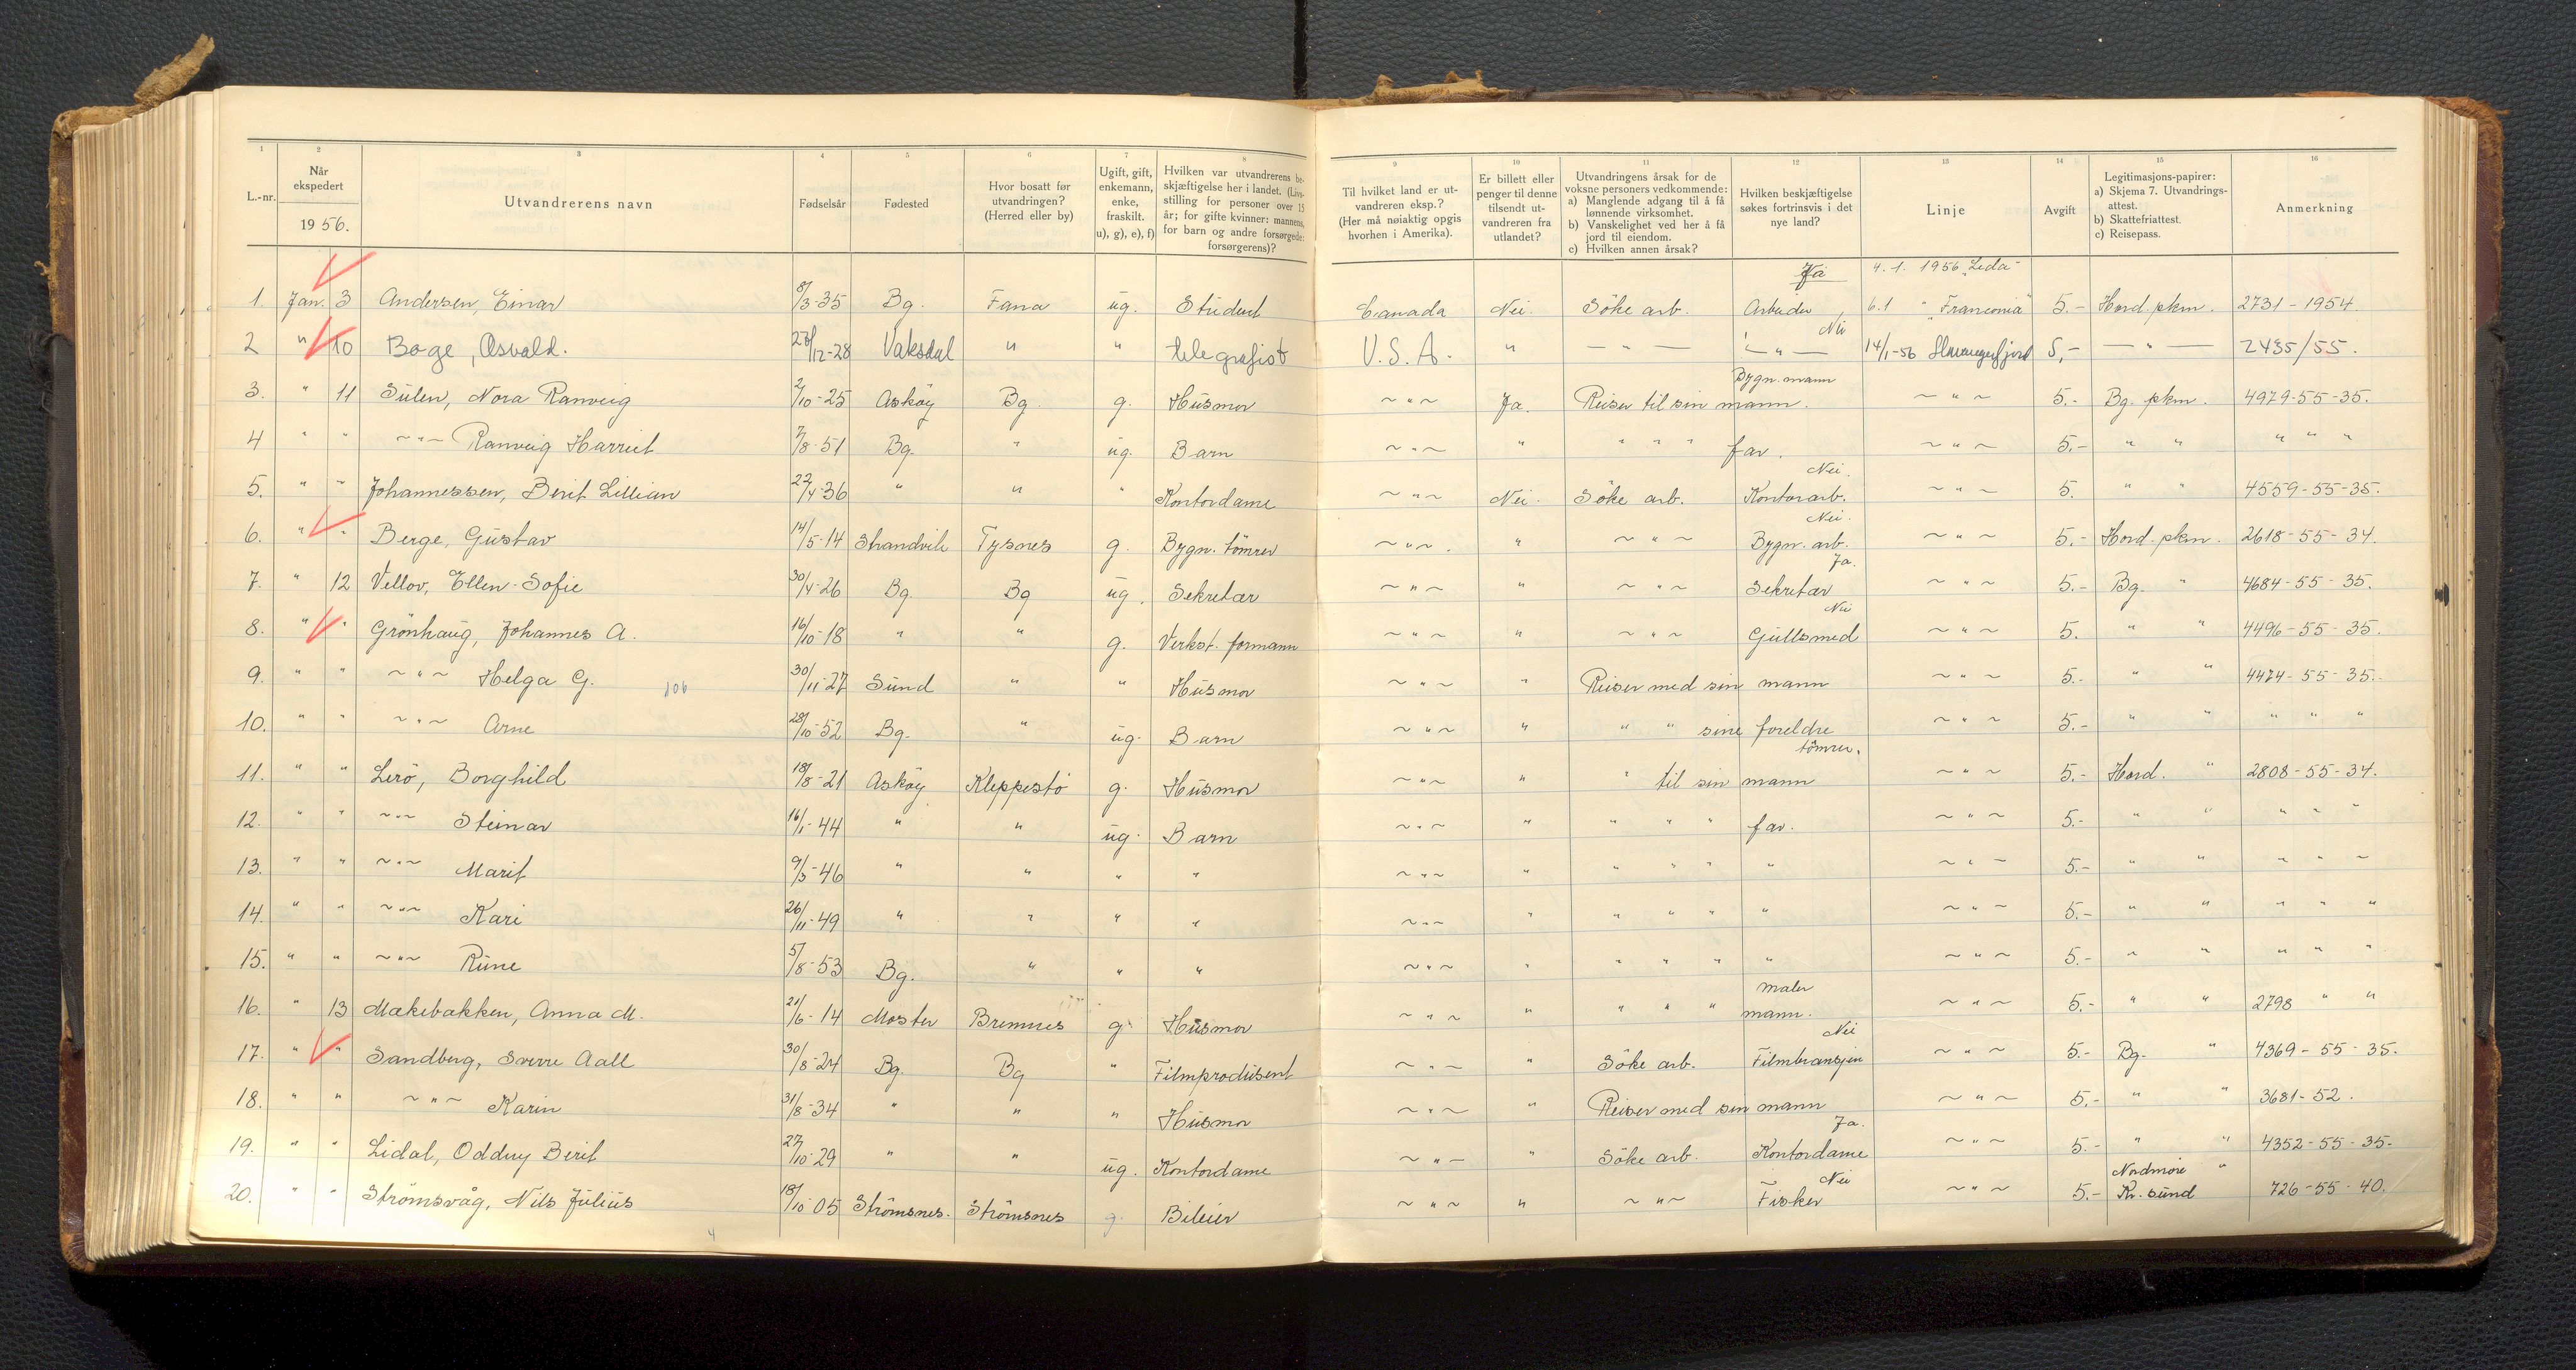 1 2 3 4 5 6 7 8 9 10 11 12 13 14 15 16
L.-nr. | Når ekspedert 1956. | Utvandrerens navn | Fødselsår | Fødested | Hvor bosatt før utvandringen? (Herred eller by) | Ugift, gift, enkemann, enke, fraskilt. u), g), e), f) | Hvilken var utvandrerens beskjæftigelse her i landet. (Livsstilling for personer over 15 år; for gifte kvinner: mannens, for barn og andre forsørgede: forsørgerens)? | Til hvilket land er utvandreren eksp.? (Her må nøiaktig opgis hvorhen i Amerika). | Er billett eller penger til denne tilsendt utvandreren fra utlandet? | Utvandringens årsak for de voksne personers vedkommende: a) Manglende adgang til å få lønnende virksomhet. b) Vanskelighet ved her å få jord til eiendom. c) Hvilken annen årsak? | Hvilken beskjæftigelse søkes fortrinsvis i det nye land? | Linje | Avgift | Legitimasjons-papirer: a) Skjema 7. Utvandringsattest. b) Skattefriattest. c) Reisepass. | Anmerkning
Ja 4.1. 1956 "Leda"
1. Jan. 3 Andersen, Einar 8/3-35 Bg. Fana ug. Student Canada Nei. Söke arb. Arbeider, 6.1 " "Franconia" 5.- Hord pkm. 2731-1954.
Nei
2 " 10 Boge, Osvald. 28/12-28 Vaksdal " " telegrafist U.S.A. " — " — — " — 14/1-56 Stavangerfjord 5,- — " — 2435/55.
Bygn. mann
3. " 11 Sulen, Nora Ranveig 2/10-25 Asköy Bg. g. Husmor ~ " ~ Ja. Reiser til sin mann. ~ " ~ 5.- Bg. pkm. 4979-55-35.
4 " " ~ " ~ Ranveig Harriet 7/8-51 Bg. " ug. Barn ~ " ~ " " " " far. ~ " ~ 5.- " " " " "
Nei.
5. " " Johannessen, Berit Lillian 22/4-36 " " " Kontordame ~ " ~ Nei. Söke arb. Kontorarb. ~ " ~ 5. " " 4559-55-35.
Nei.
6. " " Berge, Gustav 14/5-14 Strandvik Tysnes g. Bygn. tömrer ~ " ~. " ~ " ~ Bygn. arb. ~ " ~ 5.- Hord. pkm. 2618-55-34.
Ja.
7. " 12 Vellov, Ellen-Sofie 30/4-26 Bg. Bg ug. Sekretær ~ " ~ " ~ " ~ Sekretær ~ " ~ 5.- Bg. " 4684-55-35.
Nei
8. " " Grönhaug, Johannes A. 16/10-18 " " g. Verkst. formann ~ " ~ " ~ " ~ Gullsmed ~ " ~ 5. " " 4496-55-35.
9. " " ~ " ~ Helga G. 106 30/11-27 Sund " " Husmor ~ " ~ " Reiser med sin mann ~ " ~ 5.- " " 4474-55-35.
10. " " ~ " ~ Arne 28/10-52 Bg. " ug. Barn ~ " ~ " " " sine foreldre ~ " ~ 5.- " " " " "
tömrer.
11. " " Lerö, Borghild 18/8-21 Asköy Kleppestö g. Husmor ~ " ~ " " til sin mann ~ " ~ 5.- Hord. " 2808-55-34.
12. " " ~ " ~ Steinar 16/1-44 " " ug. Barn ~ " ~ " " " " far. ~ " ~ 5.- " " " " "
13. " " ~ " ~ Marit 9/5-46 " " " " ~ " ~ " " " " " ~ " ~ 5.- " " " " "
14. " " ~ " ~ Kari 26/11-49 " " " " ~ " ~ " " " " " ~ " ~ 5.- " " " " "
15. " " ~ " ~ Rune 5/8-53 Bg. " " " ~ " ~ " " " " " ~ " ~ 5.- " " " " "
maler
16. " 13 Mækebakken, Anna M. 21/6-14 Moster Bremnes g. Husmor ~ " ~ " " " " mann. ~ " ~ 5.- " " 2798 " "
Nei
17. " " Sandberg, Sverre Aall 30/8-24 Bg. Bg " Filmprodusent ~ " ~ " Söke arb. Filmbransjen ~ " ~ 5.- Bg. " 4369-55-35.
18. " " ~ " ~ Karin 31/8-34 " " " Husmor ~ " ~ " Reiser med sin mann ~ " ~ 5.- " " 3681-52.
Ja.
19. " " Lidal, Oddny Berit 27/10-29 " " ug. Kontordame ~ " ~ " Söke arb. Kontordame ~ " ~ 5.- " " 4352-55-35.
Nei Nordmöre "
20. " " Strömsvåg, Nils Julius 18/10 05 Strömsnes. Strömsnes g. Bileier ~ " ~ " ~ " ~ Fisker ~ " ~ 5.- Kr. sund 726-55-40.
4